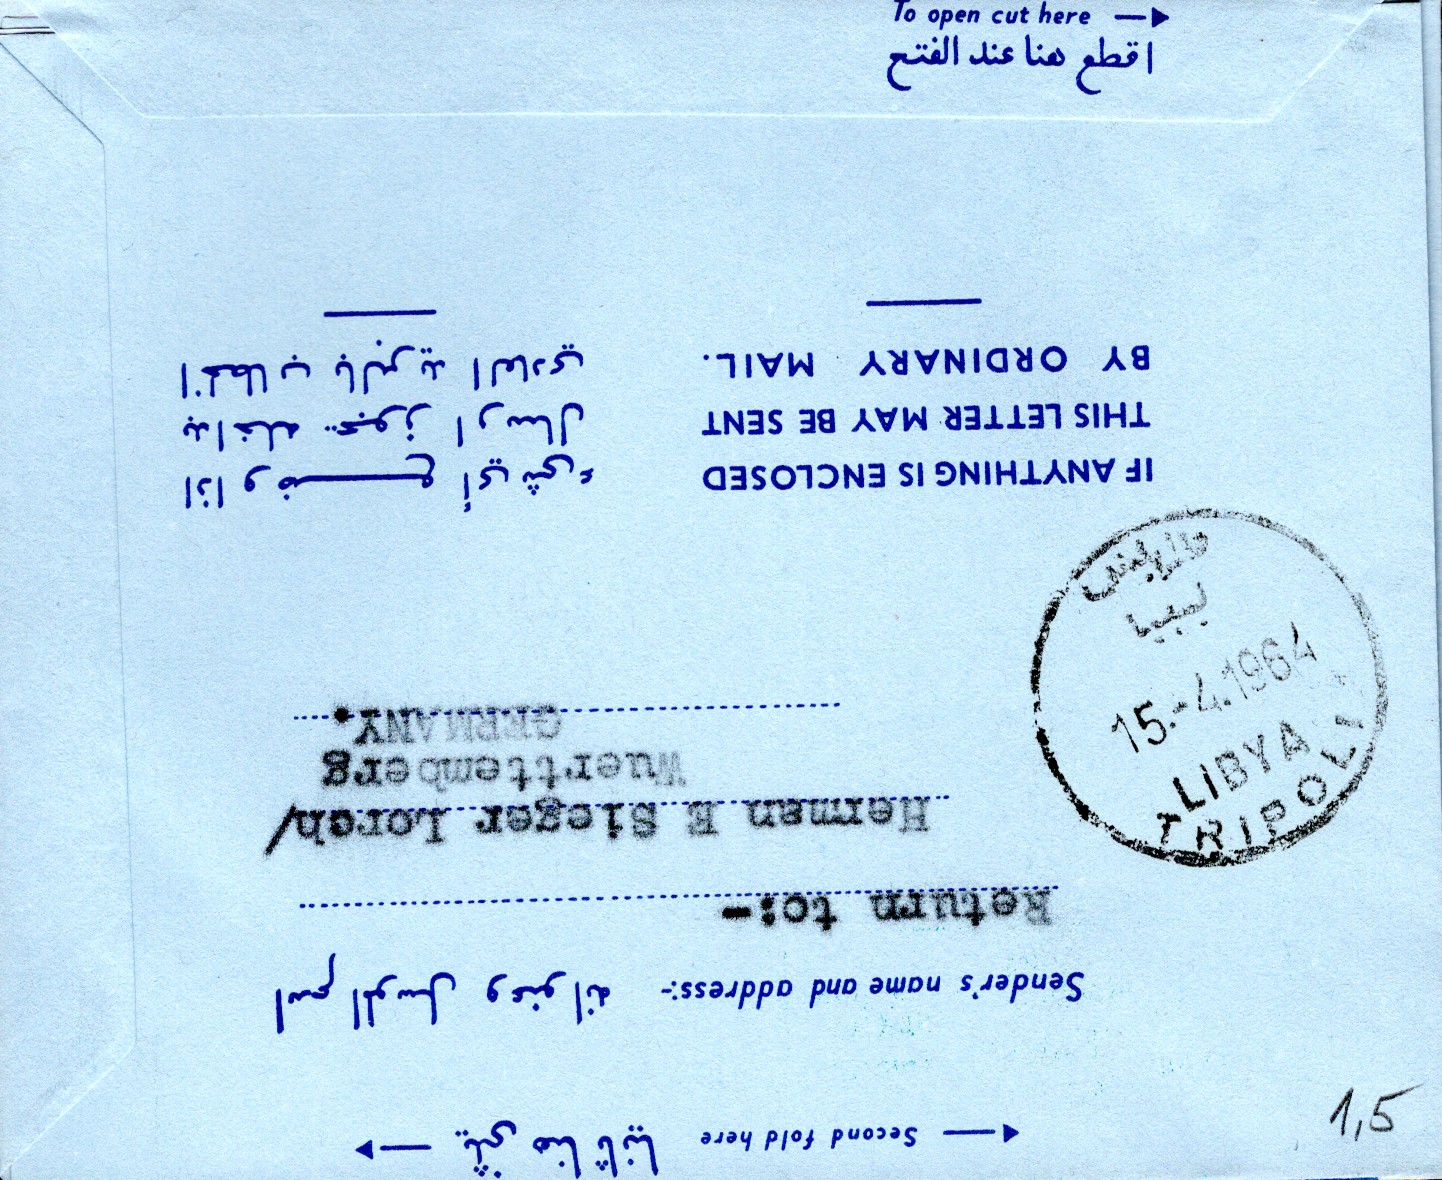 To open cut here
اقطع هنا عند الفتح
Second fold here
يثنى هنا ثانيا
Sender's name and address:-
اسم المرسل وعنوانه
Return to:-
Herman E Sieger Lorch/
Wuerttemberg
GERMANY.
طرابلس
ليبيا
15.-4.1964
LIBYA
TRIPOLI
IF ANYTHING IS ENCLOSED
THIS LETTER MAY BE SENT
BY ORDINARY MAIL.
اذا وضع أي شيء
بداخله يجوز ارسال
الخطاب بالبريد العادي
1,5